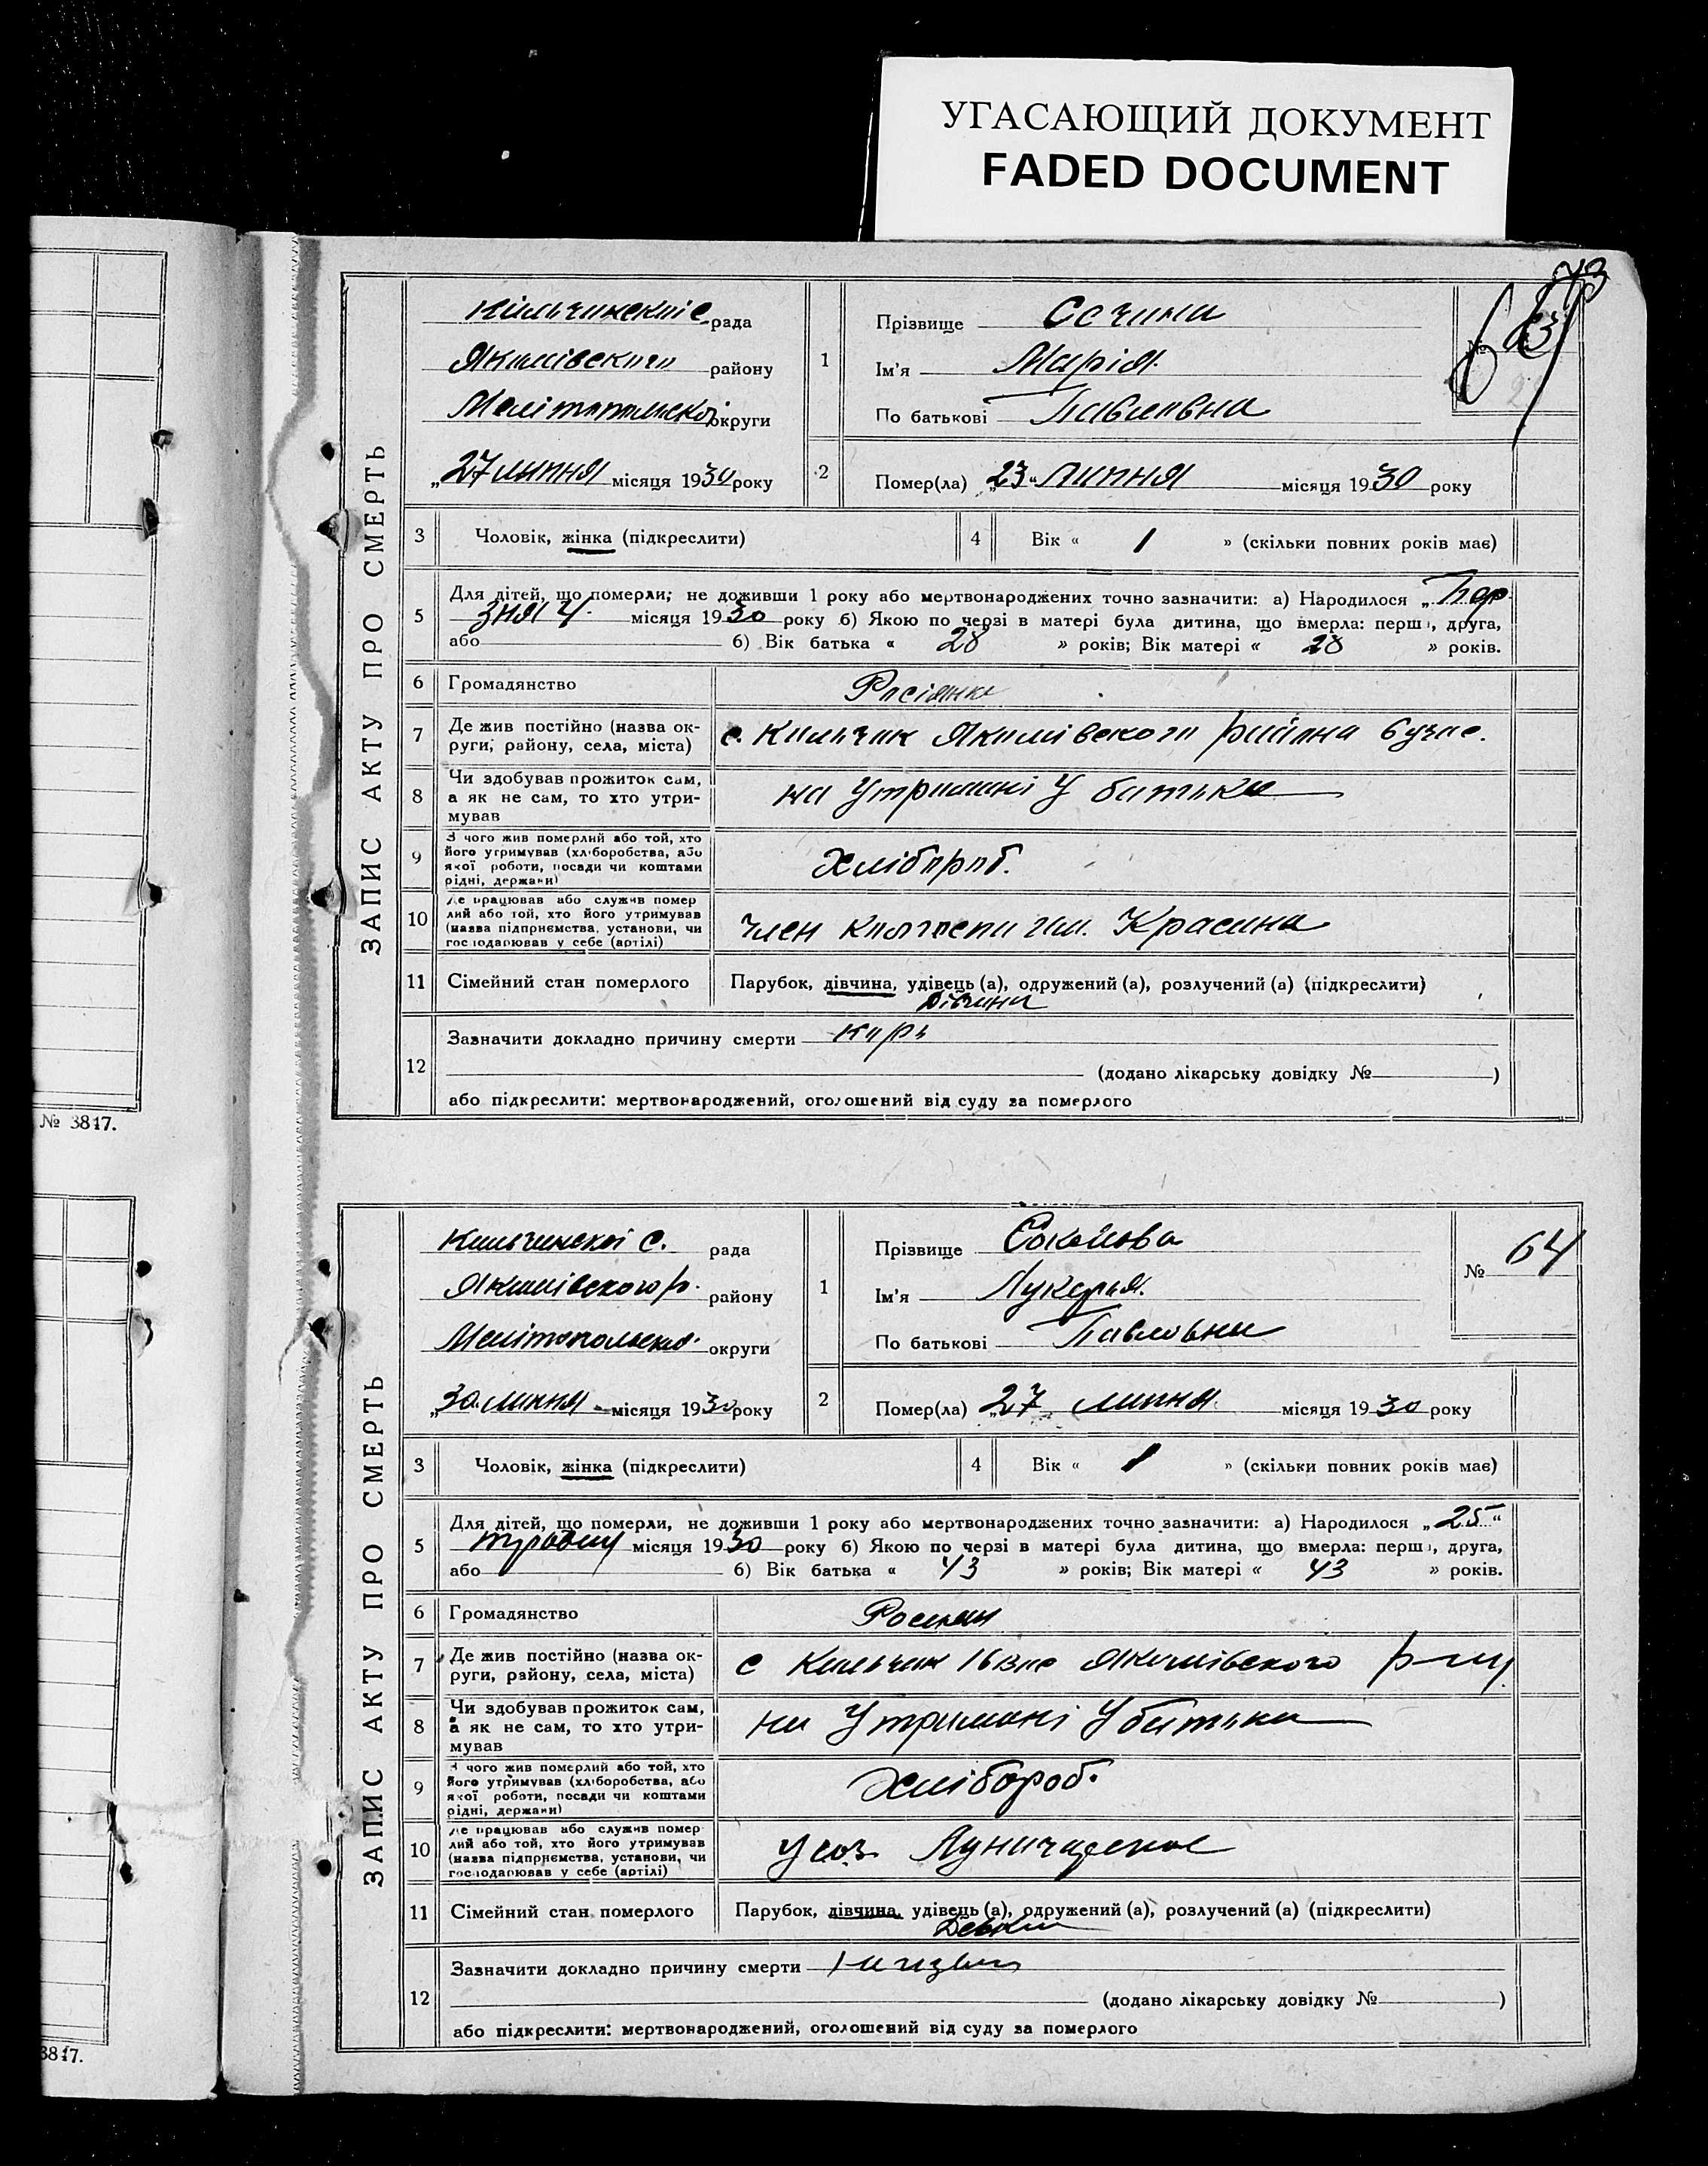 УГАСАЮЩИЙ ДОКУМЕНТ
FADED DOCUMENT
№ 3847.
3847.
ЗАПИС АКТУ ПРО СМЕРТЬ
рада
Якимівського району
Мелітопольскої округи
„27 липня місяця 1930 року
1
Прізвище
Ім'я Марія
По батькові Павловна
№ 63
2
Помер(ла) „23" липня місяця 1930 року
3 Чоловік, жінка (підкреслити)
4 Вік « 1 » (скільки повних років має)
5
Для дітей, що померли, не доживши 1 року або мертвонароджених точно зазначити: а) Народилося „
місяця 1930 року б) Якою по черзі в матері була дитина, що вмерла: перша, друга,
або б) Вік батька « 28 » років; Вік матері « 28 » років.
6 Громадянство Росіянка
7 Де жив постійно (назва ок-
руги, району, села, міста)
с. Кильчик Якимівского района
8 Чи здобував прожиток сам,
а як не сам, то хто утри-
мував
на Утримані У батька
9 З чого жив померлий або той, хто
його утримував (хліборобства, або
якої роботи, посади чи коштами
рідні, держави)
Хлібороб.
10 Де працював або служив помер
лий або той, хто його утримував
(назва підприємства, установи, чи
господарював у себе (артілі)
член Им. Красина
11 Сімейний стан померлого
Парубок, дівчина, удівець (а), одружений (а), розлучений (а) (підкреслити)
Дівчина
12
Зазначити докладно причину смерти корь
(додано лікарську довідку № )
або підкреслити: мертвонароджений, оголошений від суду за померлого
ЗАПИС АКТУ ПРО СМЕРТЬ
Кильчинскої С. рада
Якимівского р. району
округи
„30 липня місяця 1930 року
1
Прізвище
Ім'я Лукерья
По батькові Павловна
№ 64
2
Помер(ла) „27 липня місяця 1930 року
3 Чоловік, жінка (підкреслити)
4 Вік « 1 » (скільки повних років має)
5
Для дітей, що померли, не доживши 1 року або мертвонароджених точно зазначити: а) Народилося „25"
місяця 1930 року б) Якою по черзі в матері була дитина, що вмерла: перша, друга,
або б) Вік батька « 43 » років; Вік матері « 43 » років.
6 Громадянство
7 Де жив постійно (назва ок-
руги, району, села, міста)
с Кильчик Якимівского р-ну
8 Чи здобував прожиток сам,
а як не сам, то хто утри-
мував
на Утримані У батька
9 З чого жив померлий або той, хто
його утримував (хліборобства, або
якої роботи, посади чи коштами
рідні, держави)
Хлібороб.
10 Де працював або служив помер
лий або той, хто його утримував
(назва підприємства, установи, чи
господарював у себе (артілі)
11 Сімейний стан померлого
Парубок, дівчина, удівець (а), одружений (а), розлучений (а) (підкреслити)
12
Зазначити докладно причину смерти
(додано лікарську довідку № )
або підкреслити: мертвонароджений, оголошений від суду за померлого